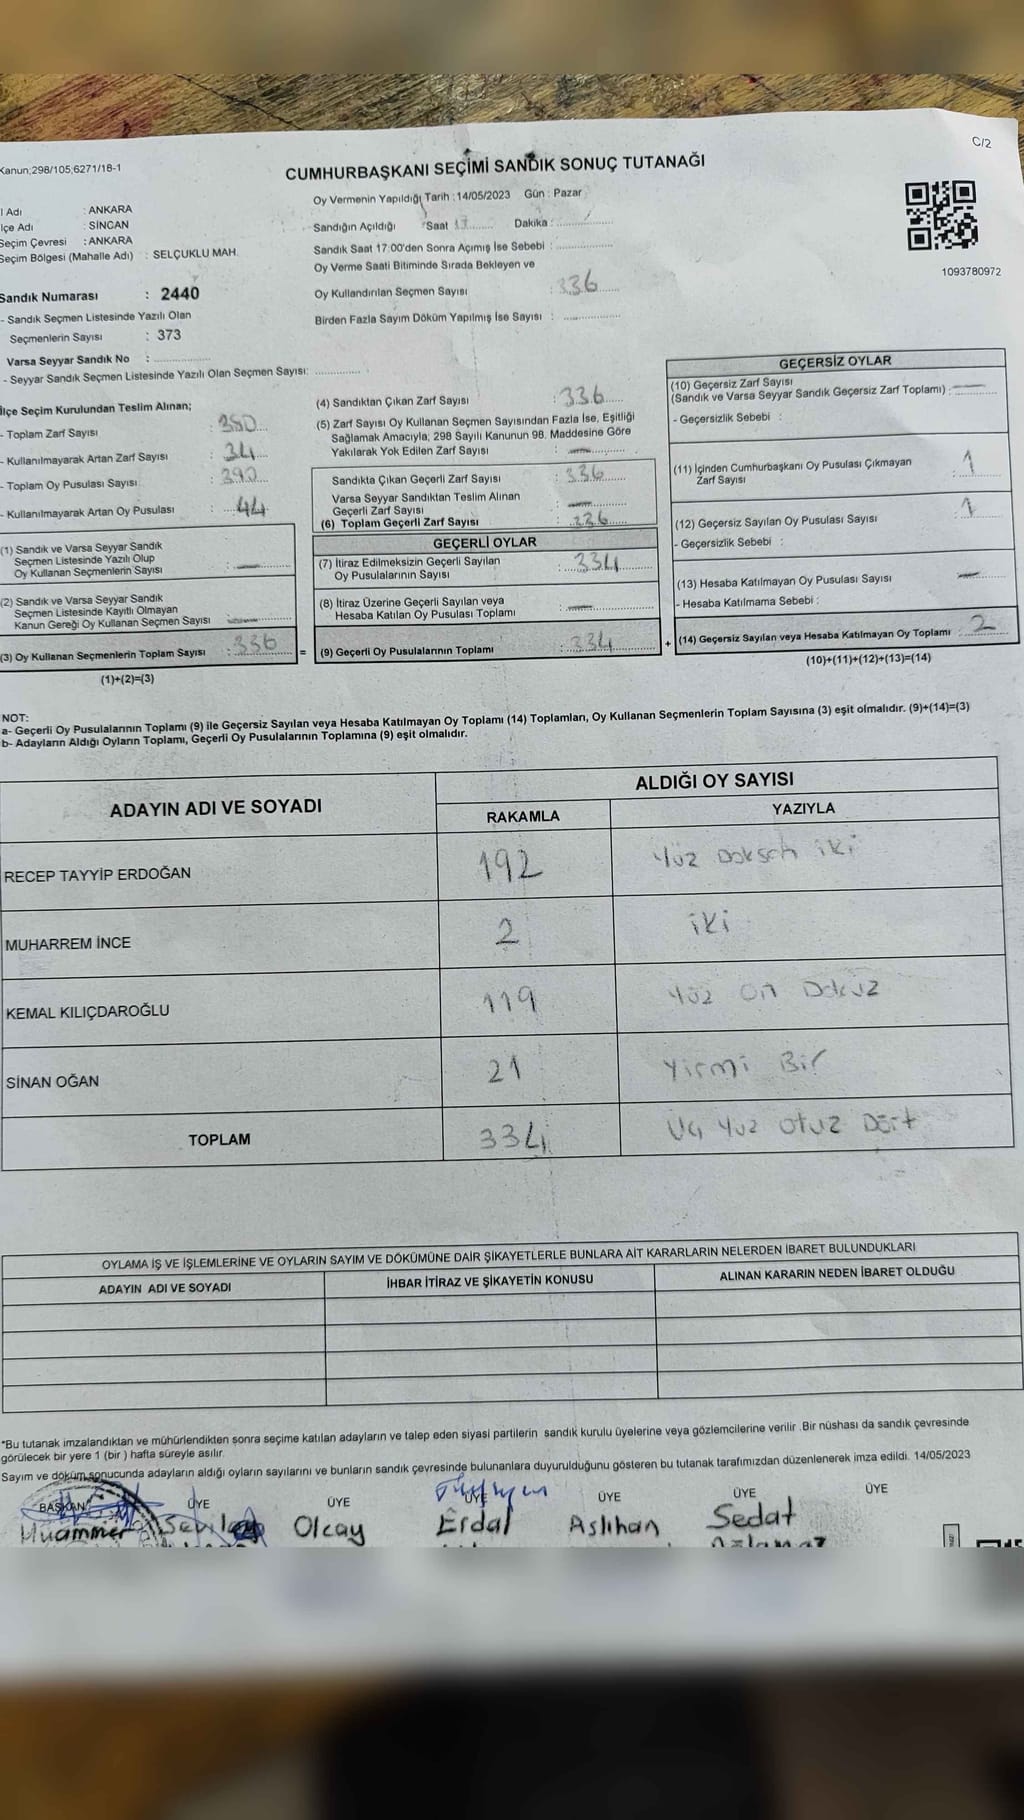 C/2
Kanun;298/105;6271/18-1
CUMHURBAŞKANI SEÇİMİ SANDIK SONUÇ TUTANAĞI
Oy Vermenin Yapıldığı Tarih :14/05/2023 Gün : Pazar
l Adı : ANKARA
lçe Adı : SİNCAN
Seçim Çevresi : ANKARA
Seçim Bölgesi (Mahalle Adı) : SELÇUKLU MAH.
Sandığın Açıldığı Saat 17 Dakika :
Sandık Saat 17:00'den Sonra Açımış İse Sebebi :
Oy Verme Saati Bitiminde Sırada Bekleyen ve
Oy Kullandırılan Seçmen Sayısı : 336
Birden Fazla Sayım Döküm Yapılmış İse Sayısı :
1093780972
Sandık Numarası : 2440
- Sandık Seçmen Listesinde Yazılı Olan
Seçmenlerin Sayısı : 373
Varsa Seyyar Sandık No :
- Seyyar Sandık Seçmen Listesinde Yazılı Olan Seçmen Sayısı:
İlçe Seçim Kurulundan Teslim Alınan;
- Toplam Zarf Sayısı : 380
- Kullanılmayarak Artan Zarf Sayısı : 34
- Toplam Oy Pusulası Sayısı : 390
- Kullanılmayarak Artan Oy Pusulası : 44
(1) Sandık ve Varsa Seyyar Sandık
Seçmen Listesinde Yazılı Olup
Oy Kullanan Seçmenlerin Sayısı : —
(2) Sandık ve Varsa Seyyar Sandık
Seçmen Listesinde Kayıtlı Olmayan
Kanun Gereği Oy Kullanan Seçmen Sayısı : —
(3) Oy Kullanan Seçmenlerin Toplam Sayısı : 336 =
(1)+(2)=(3)
(4) Sandıktan Çıkan Zarf Sayısı : 336
(5) Zarf Sayısı Oy Kullanan Seçmen Sayısından Fazla İse, Eşitliği
Sağlamak Amacıyla; 298 Sayılı Kanunun 98. Maddesine Göre
Yakılarak Yok Edilen Zarf Sayısı : —
Sandıkta Çıkan Geçerli Zarf Sayısı : 336
Varsa Seyyar Sandıktan Teslim Alınan
Geçerli Zarf Sayısı : —
(6) Toplam Geçerli Zarf Sayısı : 336
GEÇERLİ OYLAR
(7) İtiraz Edilmeksizin Geçerli Sayılan
Oy Pusulalarının Sayısı : 334
(8) İtiraz Üzerine Geçerli Sayılan veya
Hesaba Katılan Oy Pusulası Toplamı : —
(9) Geçerli Oy Pusulalarının Toplamı : 334 +
GEÇERSİZ OYLAR
(10) Geçersiz Zarf Sayısı
(Sandık ve Varsa Seyyar Sandık Geçersiz Zarf Toplamı) : —
- Geçersizlik Sebebi :
(11) İçinden Cumhurbaşkanı Oy Pusulası Çıkmayan
Zarf Sayısı 1
(12) Geçersiz Sayılan Oy Pusulası Sayısı : 1
- Geçersizlik Sebebi :
(13) Hesaba Katılmayan Oy Pusulası Sayısı —
- Hesaba Katılmama Sebebi :
(14) Geçersiz Sayılan veya Hesaba Katılmayan Oy Toplamı : 2
(10)+(11)+(12)+(13)=(14)
NOT:
a- Geçerli Oy Pusulalarının Toplamı (9) ile Geçersiz Sayılan veya Hesaba Katılmayan Oy Toplamı (14) Toplamları, Oy Kullanan Seçmenlerin Toplam Sayısına (3) eşit olmalıdır. (9)+(14)=(3)
b- Adayların Aldığı Oyların Toplamı, Geçerli Oy Pusulalarının Toplamına (9) eşit olmalıdır.
ADAYIN ADI VE SOYADI
ALDIĞI OY SAYISI
RAKAMLA YAZIYLA
RECEP TAYYİP ERDOĞAN 192 Yüz Doksan iki
MUHARREM İNCE 2 iki
KEMAL KILIÇDAROĞLU 119 Yüz On Dokuz
SİNAN OĞAN 21 Yirmi Bir
TOPLAM 334 Üç Yüz Otuz Dört
OYLAMA İŞ VE İŞLEMLERİNE VE OYLARIN SAYIM VE DÖKÜMÜNE DAİR ŞİKAYETLERLE BUNLARA AİT KARARLARIN NELERDEN İBARET BULUNDUKLARI
ADAYIN ADI VE SOYADI İHBAR İTİRAZ VE ŞİKAYETİN KONUSU ALINAN KARARIN NEDEN İBARET OLDUĞU
*Bu tutanak imzalandıktan ve mühürlendikten sonra seçime katılan adayların ve talep eden siyasi partilerin sandık kurulu üyelerine veya gözlemcilerine verilir .Bir nüshası da sandık çevresinde
görülecek bir yere 1 (bir ) hafta süreyle asılır.
Sayım ve döküm sonucunda adayların aldığı oyların sayılarını ve bunların sandık çevresinde bulunanlara duyurulduğunu gösteren bu tutanak tarafımızdan düzenlenerek imza edildi. 14/05/2023
BAŞKAN ÜYE ÜYE ÜYE ÜYE ÜYE ÜYE
Muammer Olcay Erdal Aslıhan Sedat